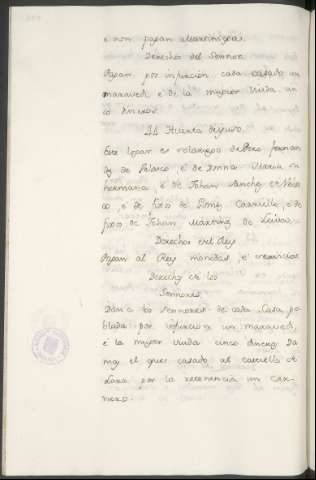 e non pagan Martiniega.
Derechos del Sennor
Pagan por infurción cada casado un
maravedi, e de la muger viuda cin
co dineros.
Este logar es solariego de Pero fernan
dez de Velasco e de Donna Maria su
hermana, e de Johan Sanchez de Velas
co, e de fijos de Gomez Carriello, e de
fijos de Johan Martinez de Leiva.
Derechos del Rey
Pagan al Rey monedas, e servicios
Derechos de los
Sennores
Dan a los sennores de cada Casa po
blada por infurcion un maravedi,
e la muger viuda cinco dineros. Da
mas el que es casado al castiello de
Lara por la
un car
nero.